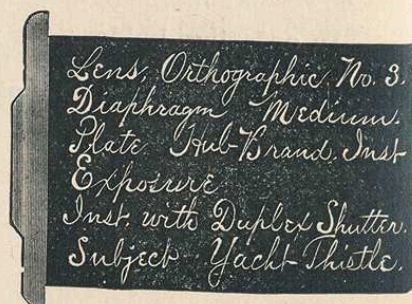 Lens, Orthographic No. 3.
Diaphragm Medium.
Plate Hub-Brand. Inst
Exposure
Inst. with Duplex Shutter.
Subject Yacht Thistle.